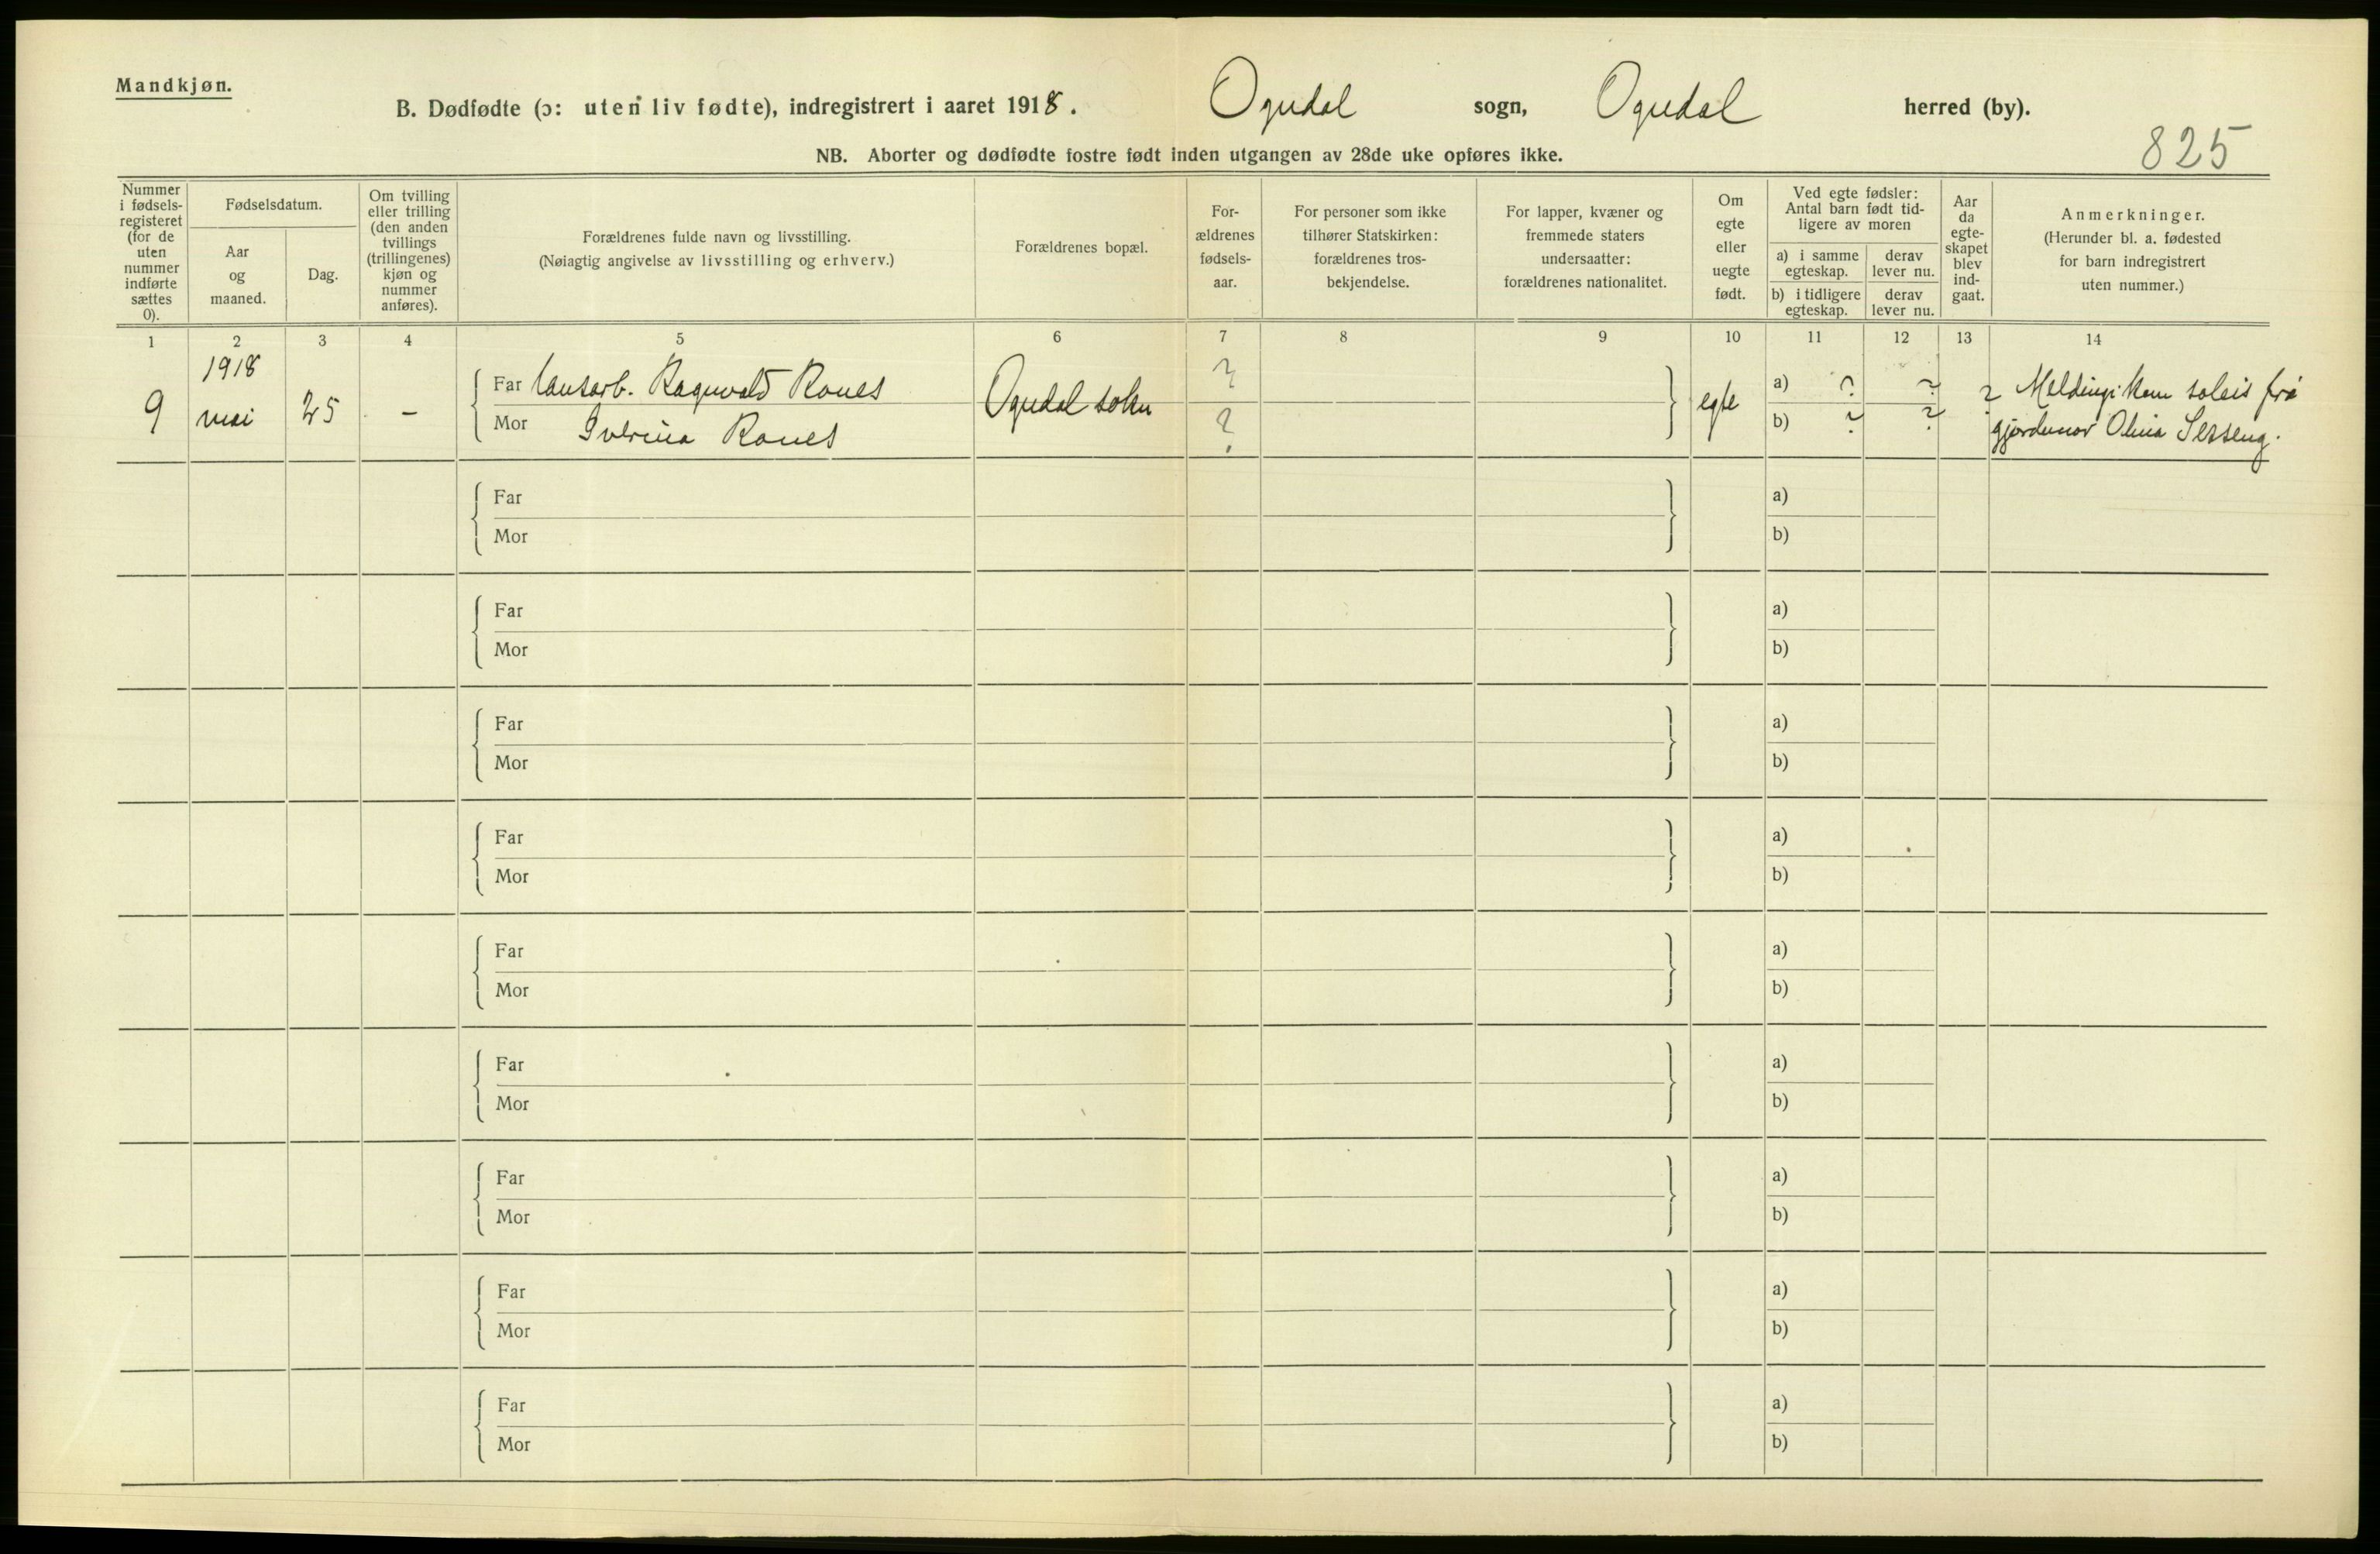 Mandkjøn.
B. Dødfødte (ɔ: uten liv fødte), indregistrert i aaret 1918. Ogndal sogn, Ogndal herred (by).
825
NB. Aborter og dødfødte fostre født inden utgangen av 28de uke opføres ikke.
Nummer
i fødsels-
registeret
(for de
uten
nummer
indførte
sættes
0).
Fødselsdatum.
Aar
og
maaned.
Dag.
Om tvilling
eller trilling
(den anden
tvillings
(trillingenes)
kjøn og
nummer
anføres).
Forældrenes fulde navn og livsstilling.
(Nøiagtig angivelse av livsstilling og erhverv.)
Forældrenes bopæl.
For-
ældrenes
fødsels-
aar.
For personer som ikke
tilhører Statskirken:
forældrenes tros-
bekjendelse.
For lapper, kvæner og
fremmede staters
undersaatter:
forældrenes nationalitet.
Om
egte
eller
uegte
født.
Ved egte fødsler:
Antal barn født tid-
ligere av moren
a) i samme
egteskap.
derav
lever nu.
b) i tidligere
egteskap.
derav
lever nu.
Aar
da
egte-
skapet
blev
ind-
gaat.
Anmerkninger.
(Herunder bl. a. fødested
for barn indregistrert
uten nummer.)
1 2 3 4 5 6 7 8 9 10 11 12 13 14
1918
9 mai 25 – Far Ragnvald Ogndal sokn ? egte a) ? ? ? Meldingi kom soleis frå
Mor ? b) ? ? gjordmor Olina
Far a)
Mor b)
Far a)
Mor b)
Far a)
Mor b)
Far a)
Mor b)
Far a)
Mor b)
Far a)
Mor b)
Far a)
Mor b)
Far a)
Mor b)
Far a)
Mor b)